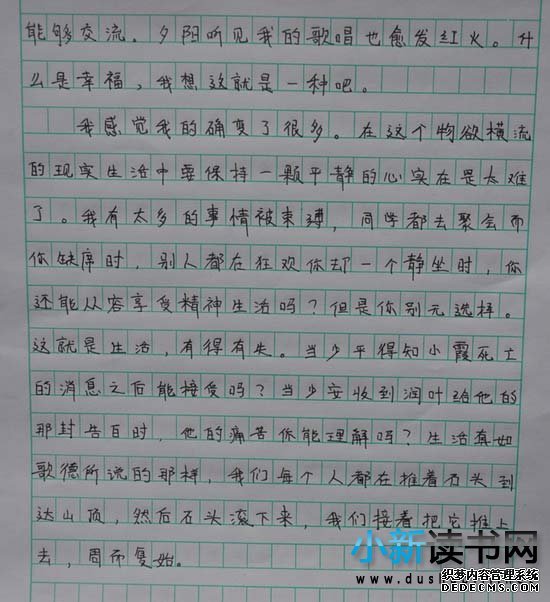 能够交流. 夕阳听见我的歌唱也愈发红火。什
么是幸福，我想这就是一种吧。
我感觉我的确变了很多。在这个物欲横流
的现实生活中要保持一颗平静的心实在是太难
了。我有太多的事情被束缚，同学都去聚会而
你缺席时，别人都在狂欢你却一个静坐时，你
还能从容享受精神生活吗？但是你别无选择。
这就是生活，有得有失。当少平得知小霞死亡
的消息之后能接受吗？当少安收到润叶给他的
那封告白时，他的痛苦你能理解吗？生活真如
歌德所说的那样，我们每个人都在推着石头到
达山顶，然后石头滚下来，我们接着把它推上
去，周而复始。
小新读书网
织梦内容管理系统
DEDECMS.COM